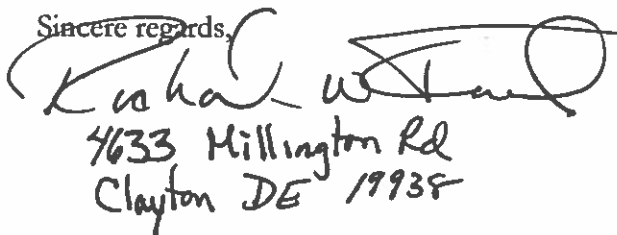 Sincere regards,
Richard W
4633 Millington Rd
Clayton DE 19938